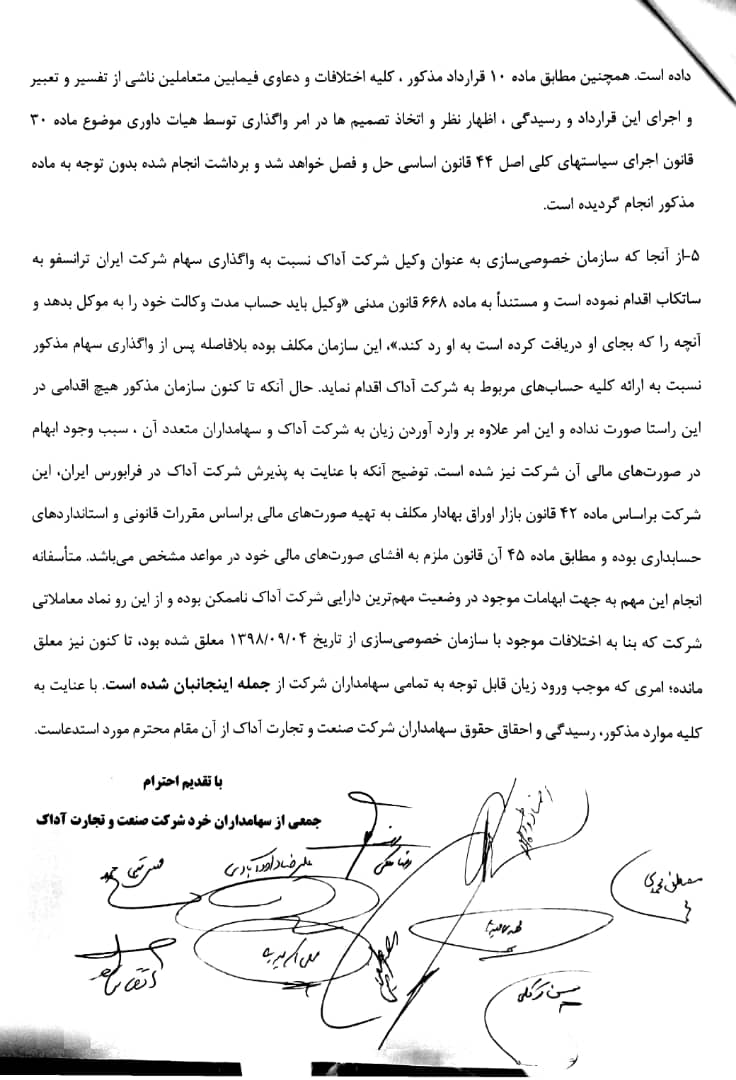 داده است. همچنین مطابق ماده ۱۰ قرارداد مذکور ، کلیه اختلافات و دعاوی فیمابین متعاملین ناشی از تفسیر و تعبیر
و اجرای این قرارداد و رسیدگی ، اظهار نظر و اتخاذ تصمیم ها در امر واگذاری توسط هیات داوری موضوع ماده ۳۰
قانون اجرای سیاستهای کلی اصل ۴۴ قانون اساسی حل و فصل خواهد شد و برداشت انجام شده بدون توجه به ماده
مذکور انجام گردیده است.
۵-از آنجا که سازمان خصوصی‌سازی به عنوان وکیل شرکت آداک نسبت به واگذاری سهام شرکت ایران ترانسفو به
ساتکاب اقدام نموده است و مستنداً به ماده ۶۶۸ قانون مدنی «وکیل باید حساب مدت وکالت خود را به موکل بدهد و
آنچه را که بجای او دریافت کرده است به او رد کند.»، این سازمان مکلف بوده بلافاصله پس از واگذاری سهام مذکور
نسبت به ارائه کلیه حساب‌های مربوط به شرکت آداک اقدام نماید. حال آنکه تا کنون سازمان مذکور هیچ اقدامی در
این راستا صورت نداده و این امر علاوه بر وارد آوردن زیان به شرکت آداک و سهامداران متعدد آن ، سبب وجود ابهام
در صورت‌های مالی آن شرکت نیز شده است. توضیح آنکه با عنایت به پذیرش شرکت آداک در فرابورس ایران، این
شرکت براساس ماده ۴۲ قانون بازار اوراق بهادار مکلف به تهیه صورت‌های مالی براساس مقررات قانونی و استانداردهای
حسابداری بوده و مطابق ماده ۴۵ آن قانون ملزم به افشای صورت‌های مالی خود در مواعد مشخص می‌باشد. متأسفانه
انجام این مهم به جهت ابهامات موجود در وضعیت مهم‌ترین دارایی شرکت آداک ناممکن بوده و از این رو نماد معاملاتی
شرکت که بنا به اختلافات موجود با سازمان خصوصی‌سازی از تاریخ ۱۳۹۸/۰۹/۰۴ معلق شده بود، تا کنون نیز معلق
مانده؛ امری که موجب ورود زیان قابل توجه به تمامی سهامداران شرکت از جمله اینجانبان شده است. با عنایت به
کلیه موارد مذکور، رسیدگی و احقاق حقوق سهامداران شرکت صنعت و تجارت آداک از آن مقام محترم مورد استدعاست.
با تقدیم احترام
جمعی از سهامداران خرد شرکت صنعت و تجارت آداک